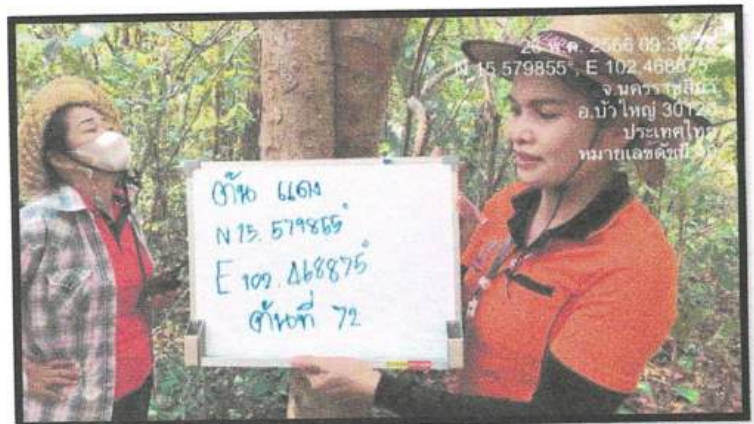 2566 09:30
N 15.579855°, E 102.468875°
จ.นครราชสีมา
อ.บัวใหญ่ 30120
ประเทศไทย
หมายเลขดัชนี
ต้น แดง
N 15. 579855°
E 102. 468875°
ต้นที่ 72